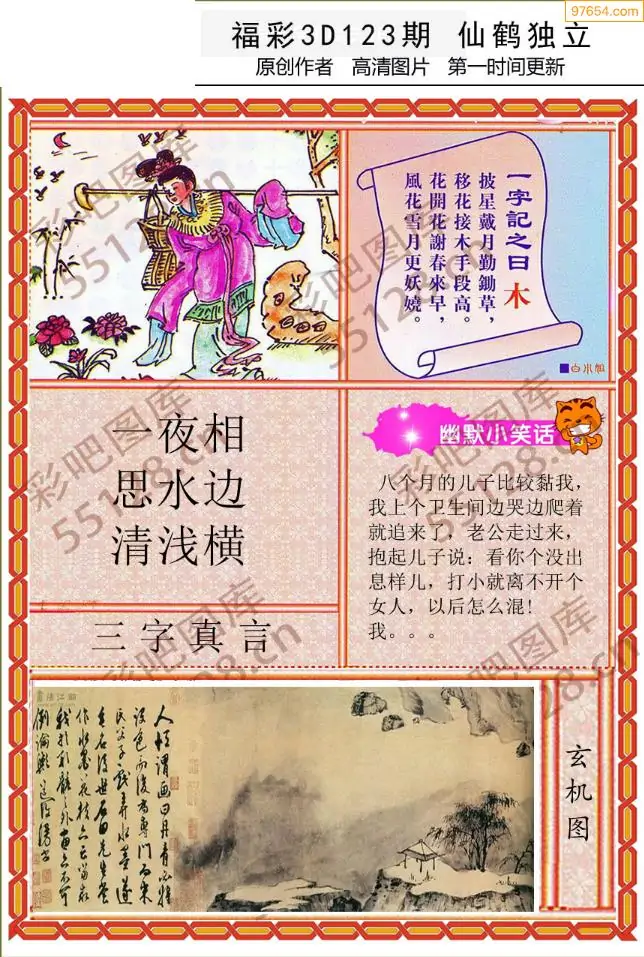 97654.com
福彩3D123期 仙鹤独立
原创作者 高清图片 第一时间更新
一字記之曰 木
披星戴月勤鋤草，
移花接木手段高。
花開花謝春來早，
風花雪月更妖嬈。
■白小姐
一夜相
思水边
清浅横
三字真言
幽默小笑话
八个月的儿子比较黏我，
我上个卫生间边哭边爬着
就追来了，老公走过来，
抱起儿子说：看你个没出
息样儿，打小就离不开个
女人，以后怎么混！
我。。。
玄机图
彩吧图库
55128.cn
彩吧图库
55128.cn
彩吧图库
55128.cn
彩吧图库
55128.cn
彩吧图库
55128.cn